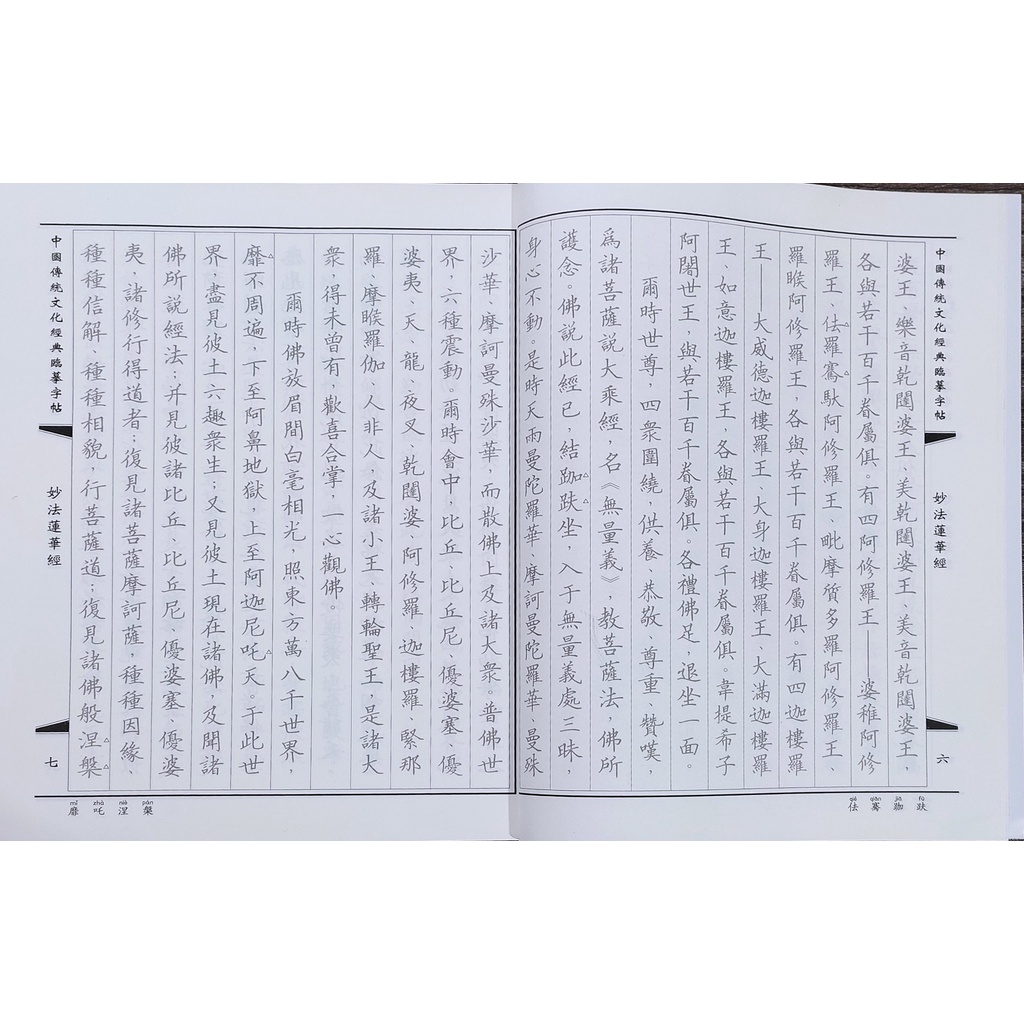 中國傳統文化經典臨摹字帖
妙法蓮華經
六
婆王、樂音乾闥婆王、美乾闥婆王、美音乾闥婆王，
各與若干百千眷屬俱。有四阿修羅王——婆稚阿修
羅王、佉羅騫馱阿修羅王、毗摩質多羅阿修羅王、
羅睺阿修羅王，各與若干百千眷屬俱。有四迦樓羅
王——大威德迦樓羅王、大身迦樓羅王、大滿迦樓羅
王、如意迦樓羅王，各與若干百千眷屬俱。韋提希子
阿闍世王，與若干百千眷屬俱。各禮佛足，退坐一面。
爾時世尊，四衆圍繞，供養、恭敬、尊重、贊嘆，
爲諸菩薩説大乘經，名《無量義》，教菩薩法，佛所
護念。佛説此經已，結跏趺坐，入于無量義處三昧，
身心不動。是時天雨曼陀羅華、摩訶曼陀羅華、曼殊
qié qiān jiā fū
佉 騫 跏 趺
沙華、摩訶曼殊沙華，而散佛上及諸大衆。普佛世
界，六種震動。爾時會中，比丘、比丘尼、優婆塞、優
婆夷、天、龍、夜叉、乾闥婆、阿修羅、迦樓羅、緊那
羅、摩睺羅伽、人非人，及諸小王、轉輪聖王，是諸大
衆，得未曾有，歡喜合掌，一心觀佛。
爾時佛放眉間白毫相光，照東方萬八千世界，
靡不周遍，下至阿鼻地獄，上至阿迦尼吒天。于此世
界，盡見彼土六趣衆生；又見彼土現在諸佛，及聞諸
佛所説經法；并見彼諸比丘、比丘尼、優婆塞、優婆
夷，諸修行得道者；復見諸菩薩摩訶薩，種種因緣、
種種信解、種種相貌，行菩薩道；復見諸佛般涅槃
中國傳統文化經典臨摹字帖
妙法蓮華經
七
mǐ zhà niè pán
靡 吒 涅 槃